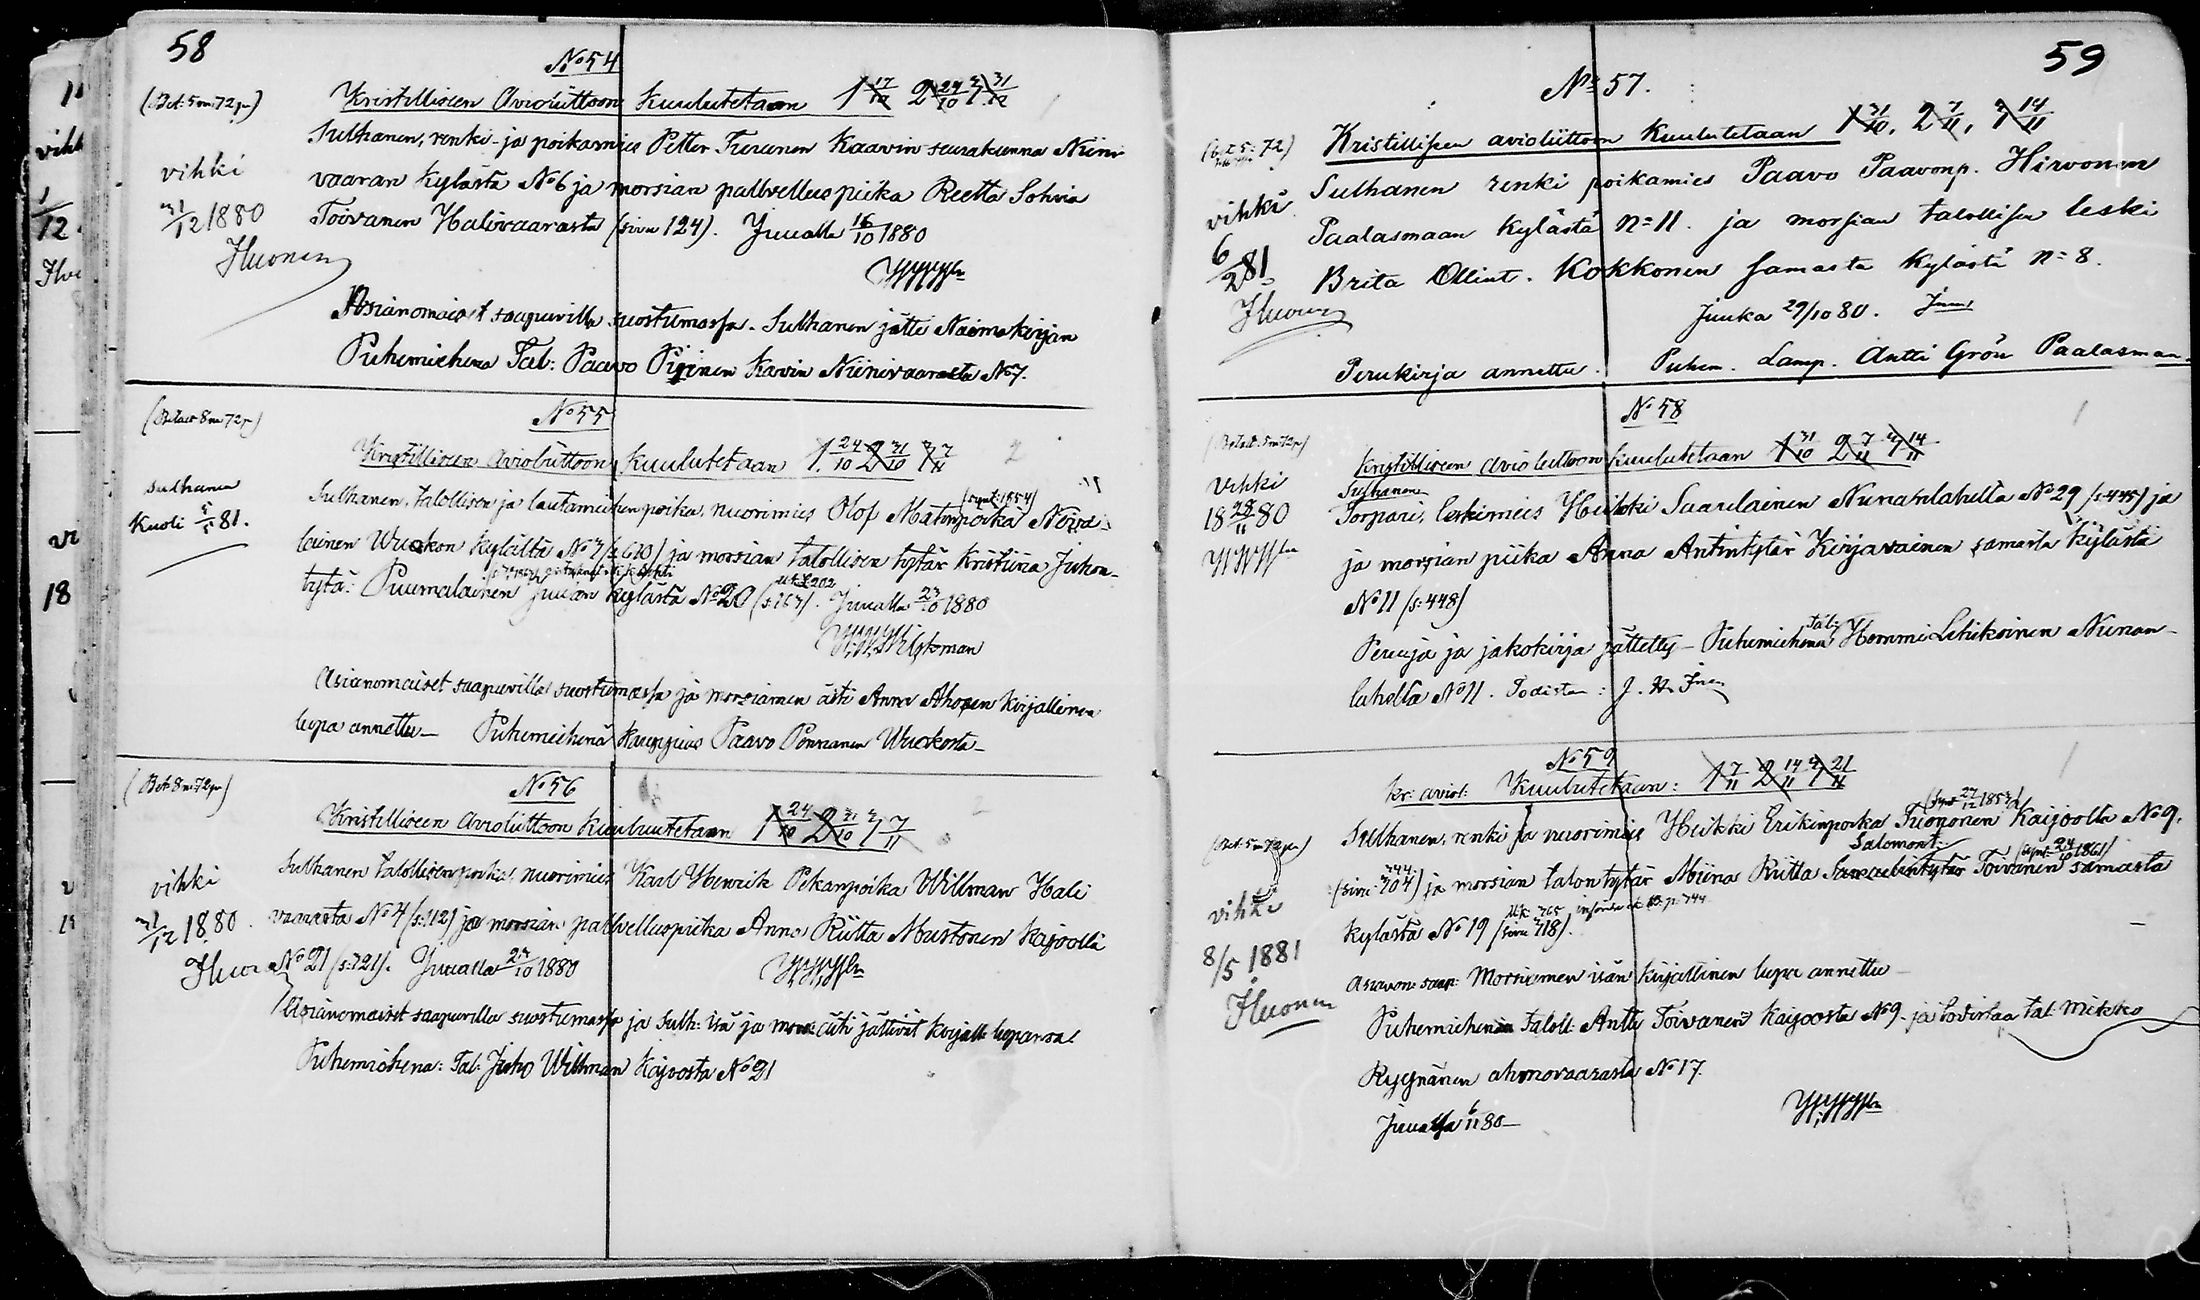 58
No 54
(Bet. 5 m. 72 p.)
Kristilliseen Avioliittoon kuulutetaan 1 17/10 2 24/10 3 31/10
Sulhanen, renki- ja poikamies Petter Turunen Kaavin seurakunna Niini
vihki
vaaran kylästä No 6 ja morsian palkvellus piika Reetta Sohvia
31/12 1880
Toivanen Halivaarasta (sivu 124). Juualla 16/10 1880
Asianomaiset saapuvilla suostumassa. Sulhanen jätti Naimakirjan
Puhemiehenä Tal: Paavo Piirinen Kavin Niinivaarasta No 7.
No 55
(Betalt 8 m 72 p)
Kristilliseen Avioliittoon kuulutetaan 1 24/10 2 31/10 3 7/11
2
(synt: 1854)
sulhanen
kuoli 5/5 81.
Sulhanen, talollisen ja lautamiehen poika, nuorimies Olof Matinpoika Neva
lainen Wuokon kylältä No 7 (s. 610) ja morsian talollisen tytär Kristiina Juhon-
tytä: Puumalainen Juuan kylästä No 20 (s. 163). Juualla 23/10 1880
Asianomaiset saapuvilla suostumassa ja morsiamen äiti Anna Ahosen kirjallinen
lupa annettu — Puhemiehenä kauppias Paavo Pennanen Wuokosta —
(Bet 8 m 72 p)
No 56
Kristilliseen Avioliittoon kuuluutetaan 1 24/10 2 31/10 3 7/11
2
Sulhanen talollisen poika, nuorimies Karl Henrik Pekanpoika Willman Hali
vihki
31/12 1880.
vaarasta No 4 (s. 112) ja morsian palkvelluspiika Anna Riitta Mustonen Kajoolla
No 21 (s. 721). Juualla 23/10 1880
Asianomaiset saapuvilla suostumassa ja sulh: isä ja mors: äiti jättivät kirjall: lupansa
Puhemiehenä: Tal: Juho Willman Kajoosta No 21
59
No 57.
Kristillisen avioliittoon kuulutetaan 1 31/10, 2 7/11, 3 14/11
Sulhanen renki poikamies Paavo Paavonp. Hirvonen
vihki
6/2 81
Paalasmaan kylästä n= 11. ja morsian talollisen leski
Brita Ollint. Kokkonen samasta kylästä n= 8.
Juuka 29/10 80.
Perukirja annettu. Puhem. Lamp. Antti Grön Paalasman.
No 58
(Betalt. 5 m 72 p)
Kristilliseen avioliittoon kuulutetaan 1 31/10 2 7/11 3 14/11
vihki
Sulhanen
18 28/11 80
Torpari, leskimies Heikki Saarelainen Nunanlahelta No 29 (s. 445) ja
ja morsian piika Anna Antintytär Kirjavainen samasta kylästä
No 11 (s. 448)
Peruja ja jakokirja jättetty — Puhemiehenä Tal: Hemmi Lehikoinen Nunan-
lahelta No 11. Todistaa:
No 59
kr: aviol: Kuulutetaan: 1 7/11 2 14/11 3 21/11
(Bet. 5 m 72 p)
Sulhanen, renki ja nuorimies Heikki Erikinpoika Tuononen Kajoolta No 9.
Salomont:
(synt. 24/10 1861)
744
(sivu 704) ja morsian talontytär Miina Riitta Toivanen samasta
vihki
kylästä No 19 (sivu 718).
8/5 1881
Morsiamen isän kirjallinen lupa annettu —
Puhemiehenä Taloll: Antti Toivanen Kajoosta No 9. ja todistaa tal: Mikko
Ryynänen ahmovaarasta No 17.
Juualla 6/11 80 —